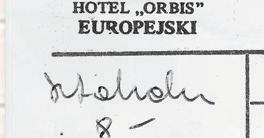 HOTEL „ORBIS”
EUROPEJSKI
8 –